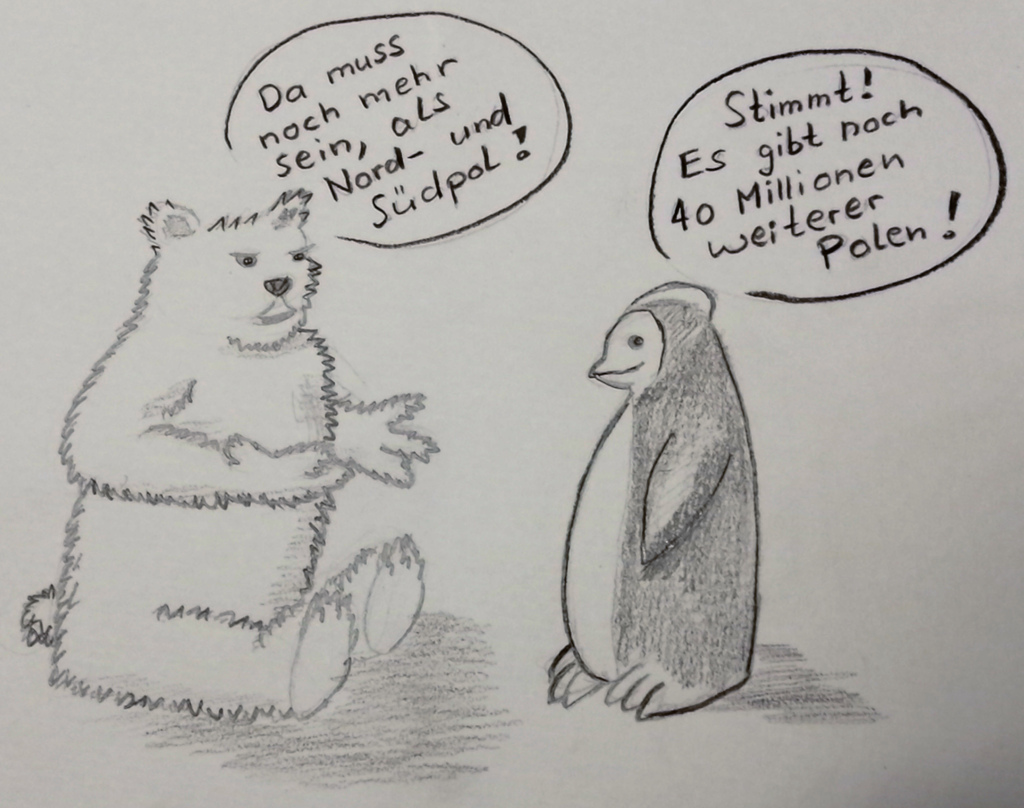 Da muss
noch mehr
sein, als
Nord- und
Südpol!
Stimmt!
Es gibt noch
40 Millionen
weiterer
Polen!